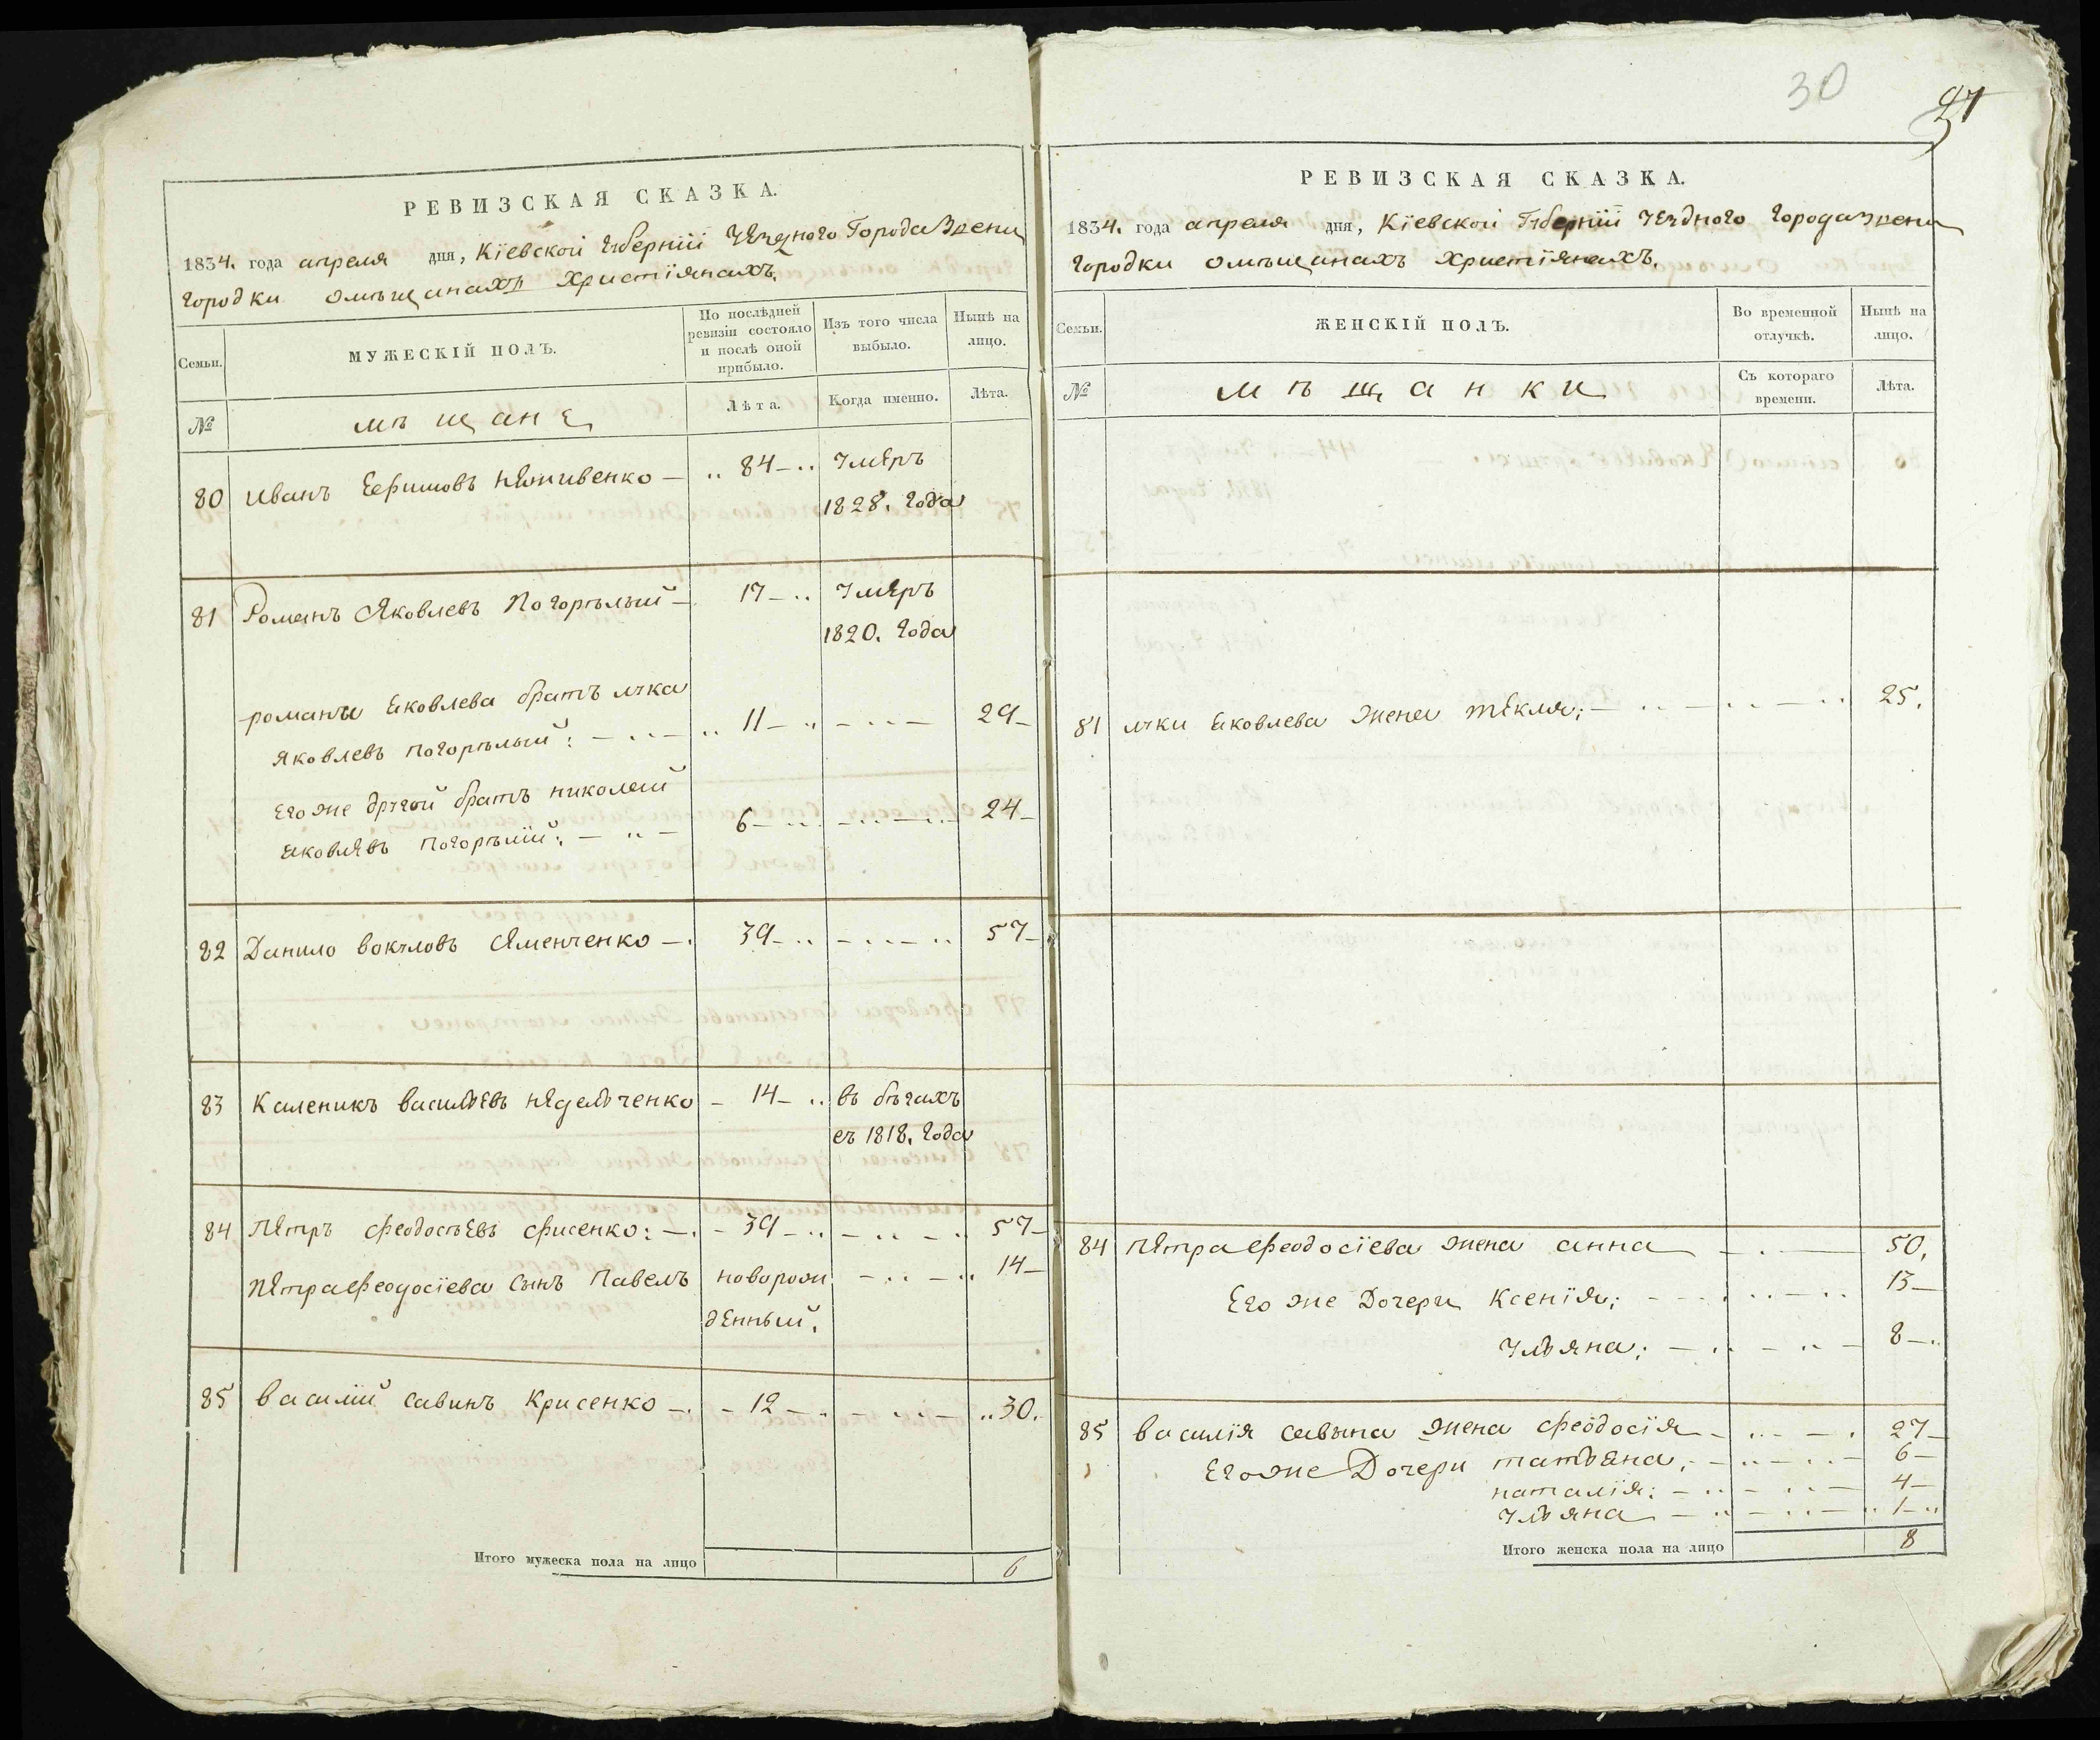 РЕВИЗСКАЯ СКАЗКА.
1834. года апреля дня, Кіевской Губерніи Уезднаго Города Звени
городки о мѣщанахъ Христіянахъ.
Семьи.
МУЖЕСКІЙ ПОЛЪ.
По послѣдней ревизіи состояло и послѣ оной прибыло.
Изъ того числа выбыло.
Нынѣ на лицо.
№
мѣщане
Лѣта.
Когда именно.
Лѣта.
80 Иванъ Ефимовъ 84 умеръ
1828. года
81 Романъ Яковлевъ Погорѣлый 17 умеръ
1820. года
романа Яковлева братъ лука
Яковлевъ погорѣлый: 11 29
Его же другой братъ николай
Яковлевъ погорѣлій: 6 24
82 Данило Яменченко 39 57
83 Каленикъ васильевъ неделченко 14 въ бѣгахъ
съ 1818. года
84 Петръ феодосѣевъ фисенко: 39 57
Петра феодосіева сынъ Павелъ новорож 14
денный.
85 василій савинъ Крисенко 12 30.
Итого мужеска пола на лицо 6
30
РЕВИЗСКАЯ СКАЗКА.
1834. года апреля дня, Кіевской Губерніи Уезднаго города Звени
городки о мѣщанахъ Христіянахъ.
Семьи.
ЖЕНСКІЙ ПОЛЪ.
Во временной отлучкѣ.
Нынѣ на лицо.
№
мѣщанки
Съ котораго времени.
Лѣта.
81 луки Яковлева жена текля; 25.
84 Петра феодосіева жена анна 50.
Его же Дочери Ксенія; 13
Ульяна; 8
85 василія савына жена феодосія 27
Его же Дочери татьяна, 6
наталія: 4
Ульяна 1
Итого женска пола на лицо 8